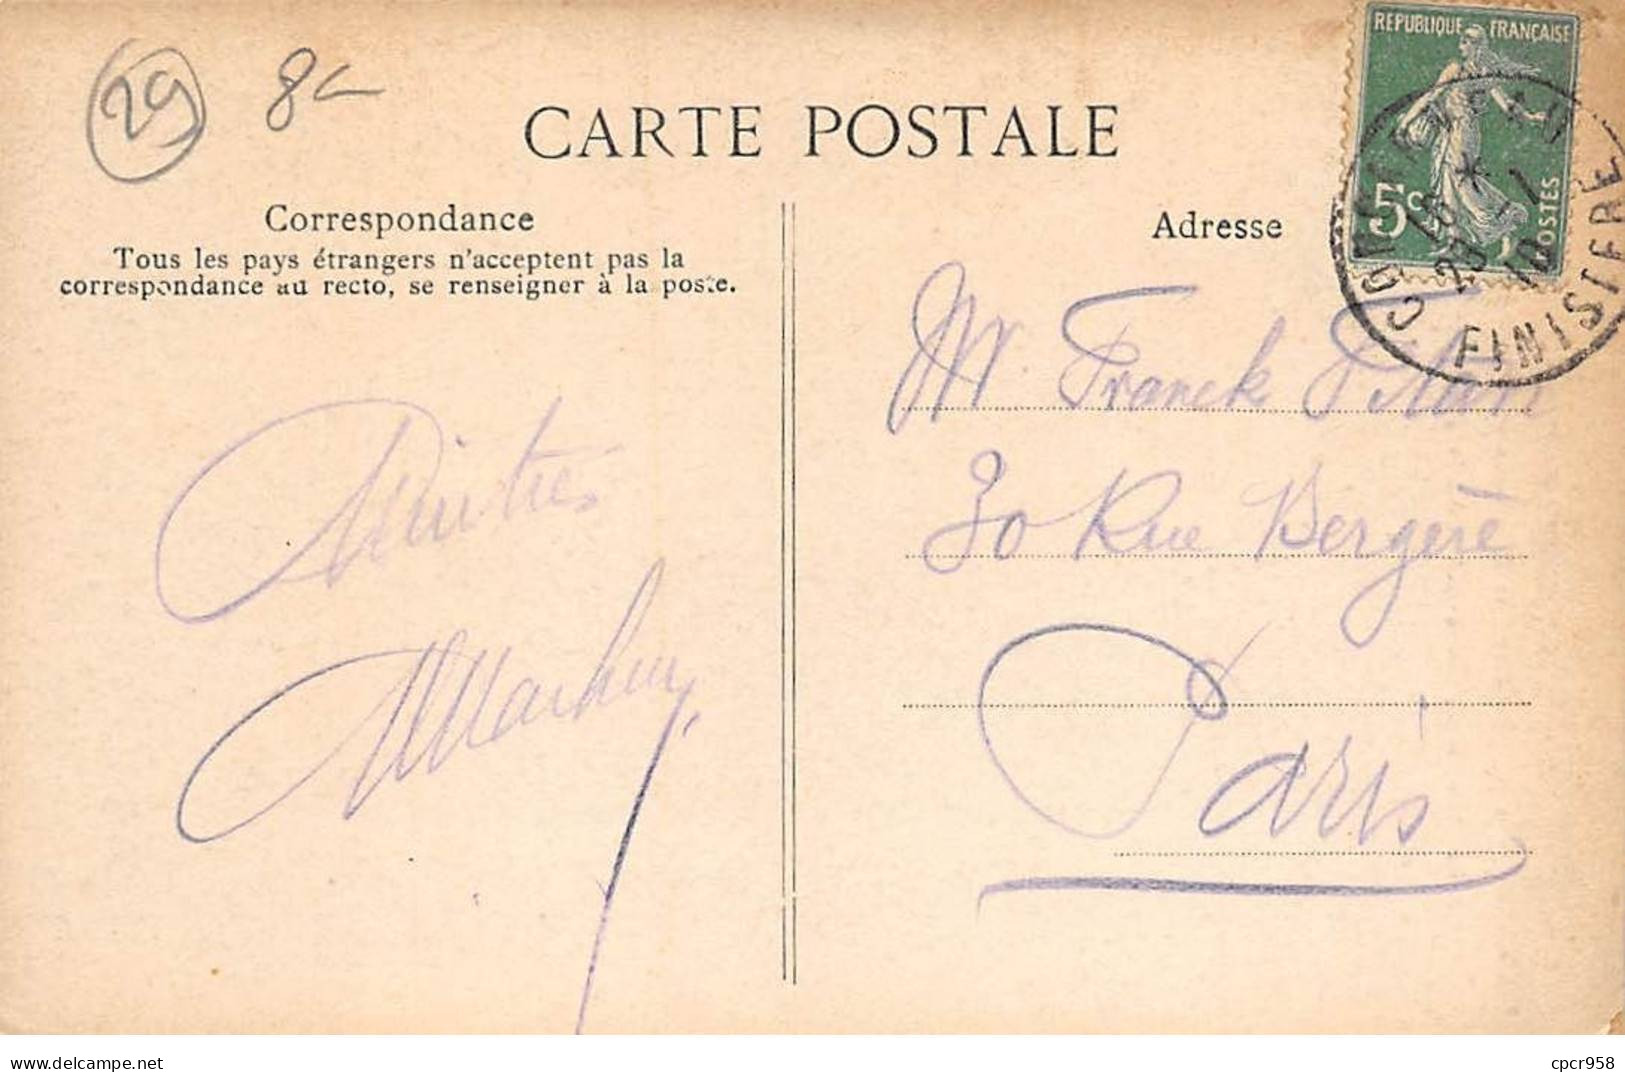 29
8
CARTE POSTALE
REPUBLIQUE FRANÇAISE
5c
POSTES
FINISTERE
Correspondance
Tous les pays étrangers n'acceptent pas la
correspondance au recto, se renseigner à la poste.
Adresse
Mr Franck
30 Rue Bergère
Paris
delcampe.net
cpcr958